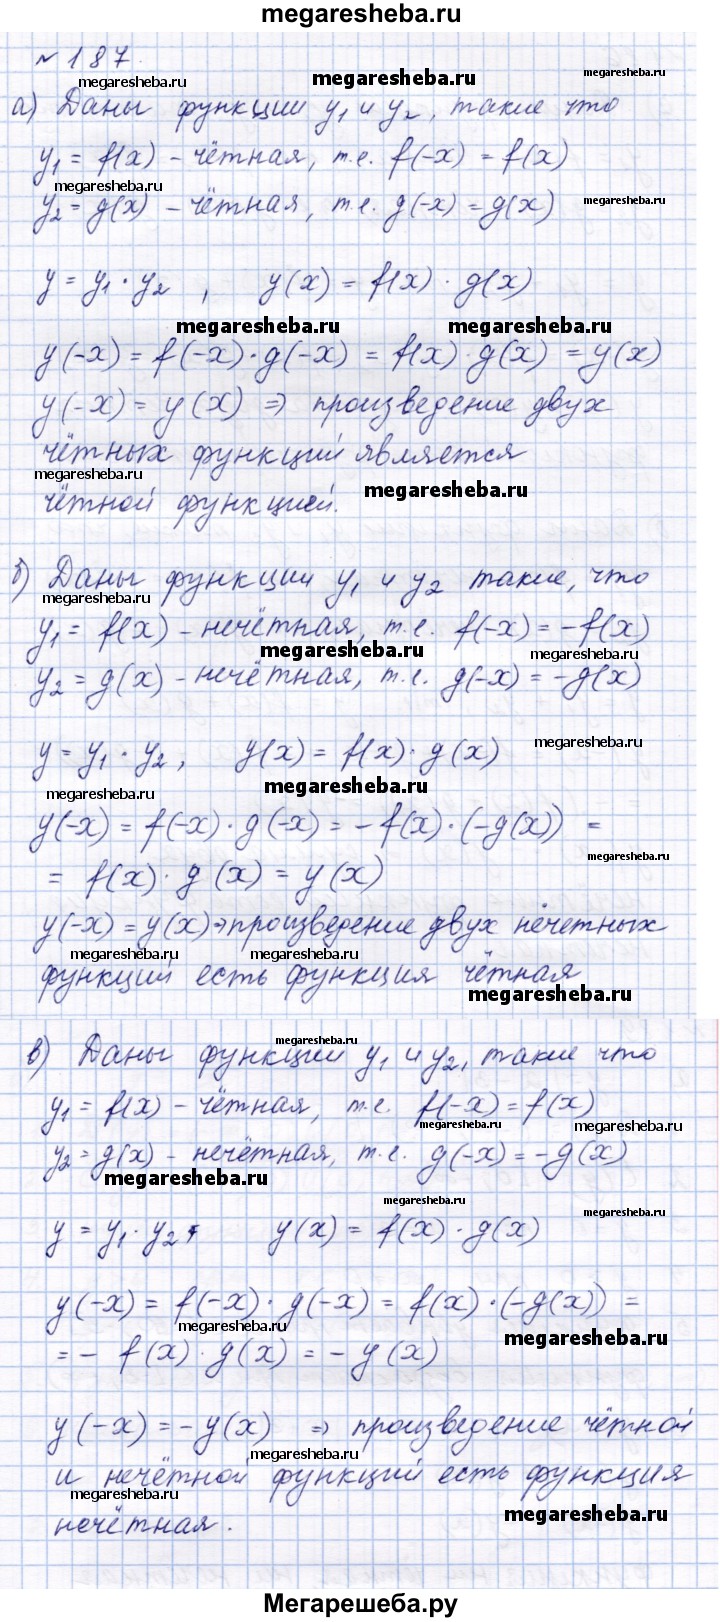 megaresheba.ru
№ 187.
megaresheba.ru megaresheba.ru megaresheba.ru
а) Даны функции y₁ и y₂, такие что
y₁ = f(x) – чётная, т.е. f(-x) = f(x)
megaresheba.ru
y₂ = g(x) – чётная, т.е. g(-x) = g(x) megaresheba.ru
y = y₁ · y₂ , y(x) = f(x) · g(x)
megaresheba.ru megaresheba.ru
y(-x) = f(-x) · g(-x) = f(x) · g(x) = y(x)
y(-x) = y(x) ⇒ произведение двух
чётных функций является
megaresheba.ru megaresheba.ru
чётной функцией.
б) Даны функции y₁ и y₂ такие, что
megaresheba.ru
y₁ = f(x) – нечётная, т.е. f(-x) = -f(x)
megaresheba.ru megaresheba.ru
y₂ = g(x) – нечётная, т.е. g(-x) = -g(x)
y = y₁ · y₂, y(x) = f(x) · g(x) megaresheba.ru
megaresheba.ru megaresheba.ru
y(-x) = f(-x) · g(-x) = -f(x) · (-g(x)) =
megaresheba.ru
= f(x) · g(x) = y(x)
y(-x) = y(x) ⇒ произведение двух нечетных
megaresheba.ru megaresheba.ru
функций есть функция чётная
megaresheba.ru
megaresheba.ru
в) Даны функции y₁ и y₂, такие что
y₁ = f(x) – чётная, т.е. f(-x) = f(x)
megaresheba.ru megaresheba.ru
y₂ = g(x) – нечётная, т.е. g(-x) = -g(x)
megaresheba.ru
megaresheba.ru megaresheba.ru
y = y₁ · y₂, y(x) = f(x) · g(x)
y(-x) = f(-x) · g(-x) = f(x) · (-g(x)) =
megaresheba.ru megaresheba.ru
= - f(x) · g(x) = - y(x)
y(-x) = -y(x) ⇒ произведение чётной
megaresheba.ru
и нечётной функций есть функция
megaresheba.ru megaresheba.ru
нечётная.
Мегарешеба.ру